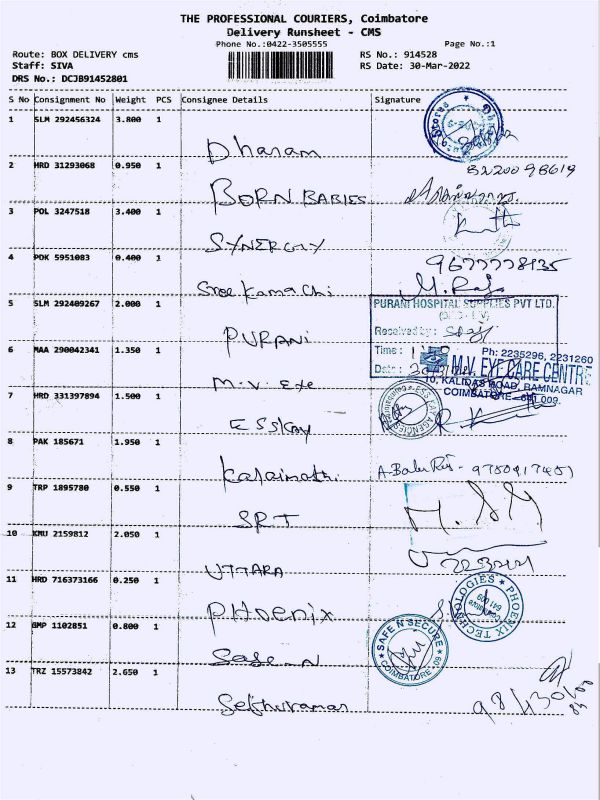 THE PROFESSIONAL COURIERS, Coimbatore
Delivery Runsheet - CMS
Phone No.:0422-3505555
Page No.:1
Route: BOX DELIVERY cms
RS No.: 914528
Staff: SIVA
RS Date: 30-Mar-2022
DRS No.: DCJB91452801
S No Consignment No Weight PCS Consignee Details Signature
1 SLM 292456324 3.800 1
Dharam
2 HRD 31293068 0.950 1
8220098619
BORN BABIES
3 POL 3247518 3.400 1
SYNERGY
4 PDK 5951083 0.400 1
9677778135
Sree Kamachi
5 SLM 292409267 2.000 1
PURANI HOSPITAL SUPPLIES PVT LTD.
Received by:
PURANI
Time :
6 MAA 290042341 1.350 1
Ph: 2235296, 2231260
Date :
M.V. EYE CARE CENTRE
M.V. Eye
10, KALIDAS ROAD, RAMNAGAR
COIMBATORE - 641 009.
7 HRD 331397894 1.500 1
ESS KAY AGENCIES
ESSKAY
8 PAK 185671 1.950 1
Kalaimathi
9 TRP 1895780 0.550 1
SRT
10 KMU 2159812 2.050 1
UTTARA
11 HRD 716373166 0.250 1
PHOENIX TECHNOLOGIES
641 009
PHOENIX
12 GMP 1102851 0.800 1
SAFE N SECURE
COIMBATORE - 09
Safe-N
13 TRZ 15573842 2.650 1
Sethuraman